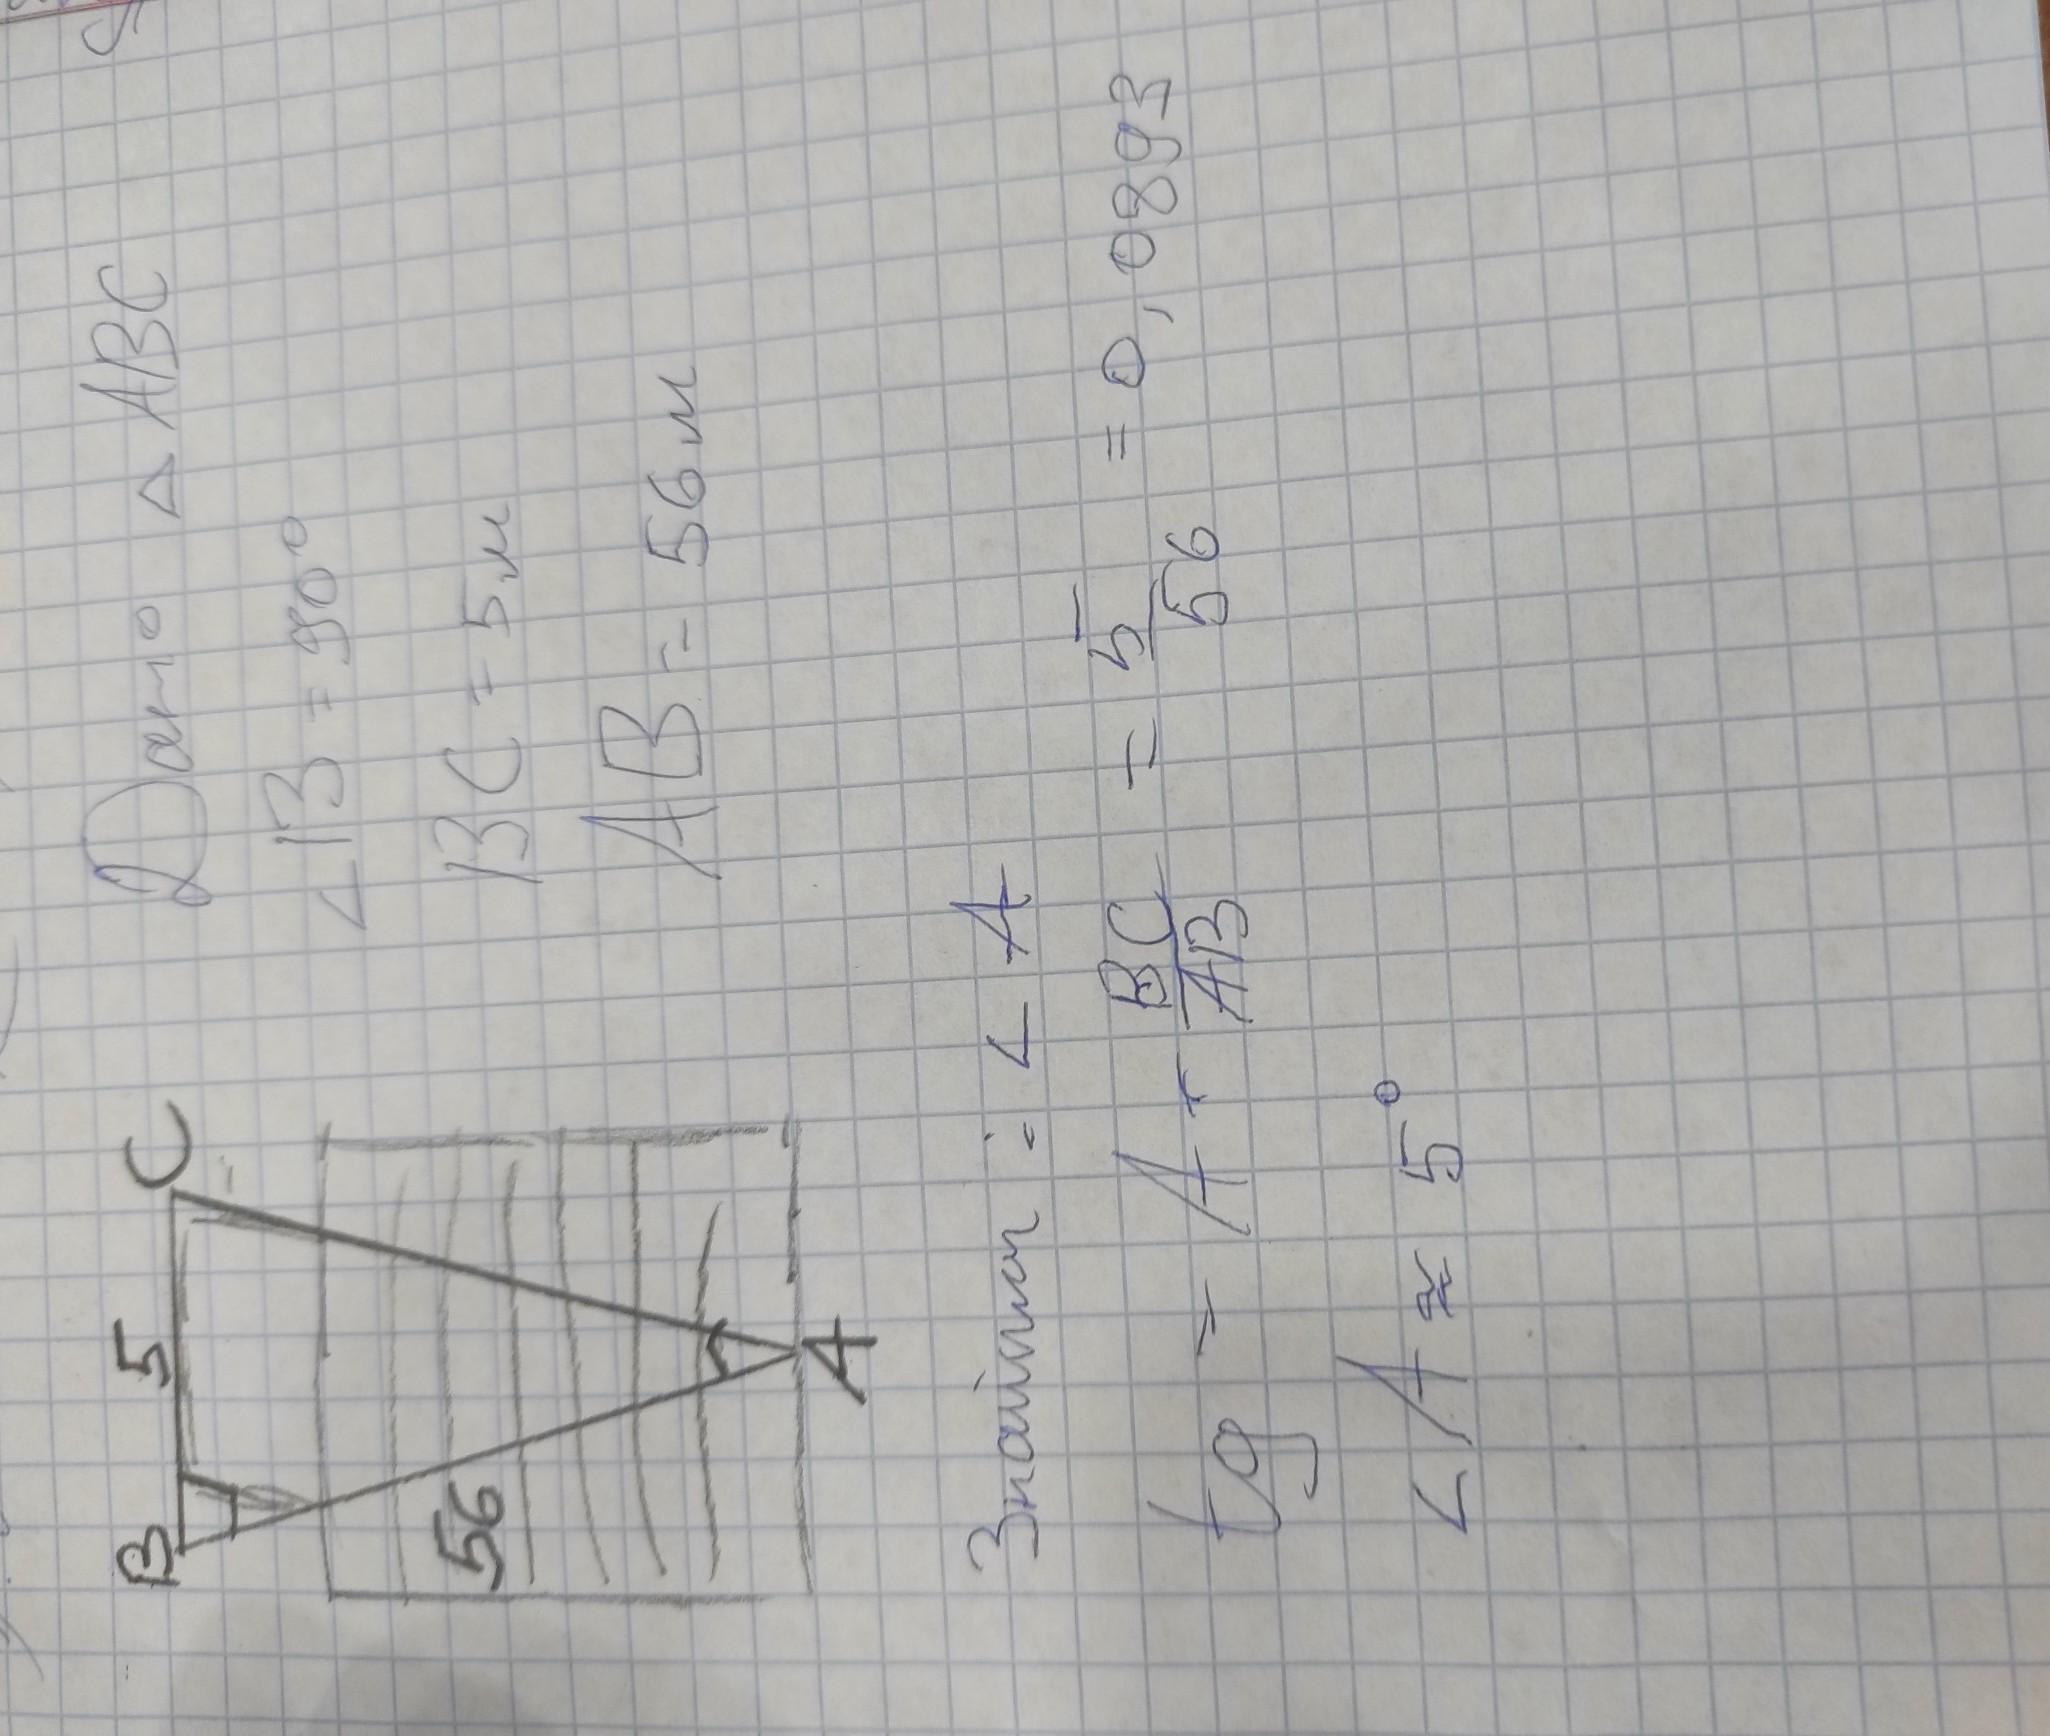 B 5 C
56
A
Дано △ ABC
∠B = 90°
BC = 5м
AB = 56м
Знайти : ∠ A
tg - A = BC/AB = 5/56 = 0,0893
∠A ≈ 5°